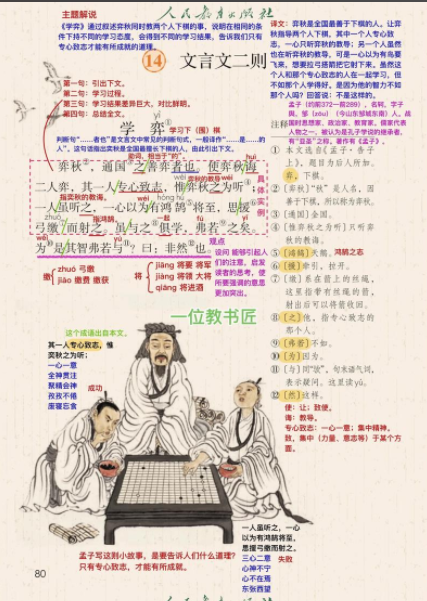 人民教育出版社
主题解说
《学弈》通过叙述弈秋同时教两个人下棋的事，说明在相同的条
件下持不同的学习态度，会得到不同的学习结果，告诉我们只有
专心致志才能有所成就的道理。
14 文言文二则
第一句：引出下文。
第二句：学习过程。
第三句：学习结果差异巨大，对比鲜明。
第四句：总结全文。
译文：弈秋是全国最善于下棋的人。让弈
秋指导两个人下棋，其中一个人专心致
志，一心只听弈秋的教导；另一个人虽然
也在听弈秋的教导，可是一心以为有鸟要
飞来，想要拉弓搭箭把它射下来。虽然这
个人和那个专心致志的人在一起学习，但
不如那个人学得好。是因为他的智力不如
那个人吗？回答说：不是这样的。
孟子（约前372—前289），名轲，字子
舆，邹（zōu）（今山东邹城东南）人，战
国时思想家、政治家、教育家，儒家代表
人物之一，被认为是孔子学说的继承者，
有“亚圣”之称，著作有《孟子》。
yì
学 弈 学习下（围）棋
判断句“……者也”是文言文中常见的判断句式，一般译作“……是……的
人”。这句话指出弈秋是全国最善长下棋的人，由此引出下文。
动词，相当于“的”。
huì
弈秋，通国之善弈者也。使弈秋诲
wéi 弈秋的教导
二人弈，其一人专心致志，惟弈秋之为听
指弈秋的教诲。
wéi hóng hú yuán
一人虽听之，一心以为有鸿鹄将至，思援
zhuó 指鸿鹄
弓缴而射之。虽与之俱学，弗若之矣。
wèi yú
为是其智弗若与？曰：非然也。
具体实例
观点
设问 能够引起人
们的注意，启发
读者的思考，使
所要强调的意思
更加突出。
缴 zhuó 弓缴
jiǎo 缴费 缴获
将 jiāng 将要 将军
jiàng 将领 大将
qiāng 将进酒
注释
① 本文选自《孟子·告子
上》，题目为后人所加。
弈，下棋。
② 〔弈秋〕“秋”是人名，因
善于下棋，所以称为弈秋。
③ 〔通国〕全国。
④ 〔惟弈秋之为听〕只听弈
秋的教诲。
⑤ 〔鸿鹄〕天鹅。 鸿鹄之志
⑥ 〔援〕牵引，拉开。
⑦ 〔缴〕系在箭上的丝绳，
这里指带有丝绳的箭，
射出后可以将箭收回。
⑧ 〔之〕他，指专心致志的
那个人。
⑨ 〔弗若〕不如。
⑩ 〔为〕因为。
⑪ 〔与〕同“欤”，句末语气词，
表示疑问。这里读yú。
⑫ 〔然〕这样。
使：让；致使。
诲：教导。
专心致志：一心一意；集中精神。
致、集中（力量、意志等）于某个方
面。
一位教书匠
这个成语出自本文。
其一人专心致志，惟
弈秋之为听；
一心一意
全神贯注
聚精会神
孜孜不倦
废寝忘食
成功
一人虽听之，一心
以为有鸿鹄将至，
思援弓缴而射之。
三心二意
心神不宁
心不在焉
东张西望
失败
孟子写这则小故事，是要告诉人们什么道理？
只有专心致志，才能有所成就。
80
人民教育出版社